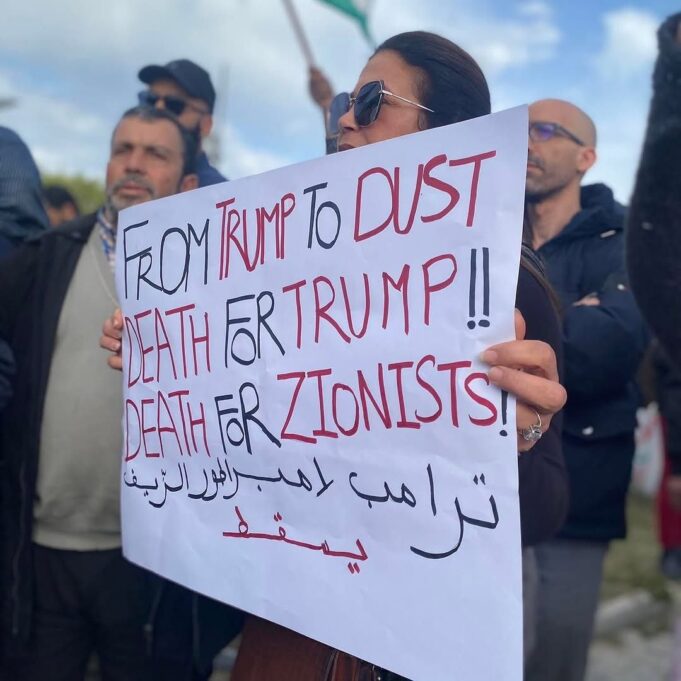 FROM TRUMP TO DUST
DEATH FOR TRUMP!!
DEATH FOR ZIONISTS!
ترامب لامبراطور الزيف
يسقط